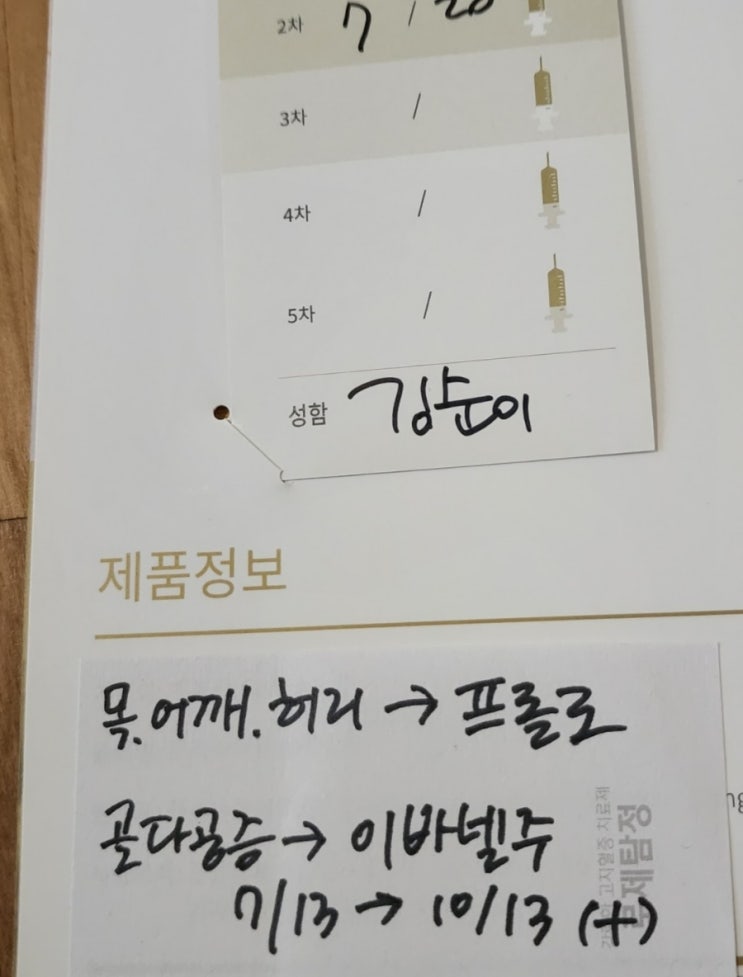 2차 7 / 20
3차 /
4차 /
5차 /
성함 김순이
제품정보
목.어깨.허리 → 프롤로
골다공증 → 이바넬주
7/13 → 10/13 (+)
고지혈증 치료제
로제탐정